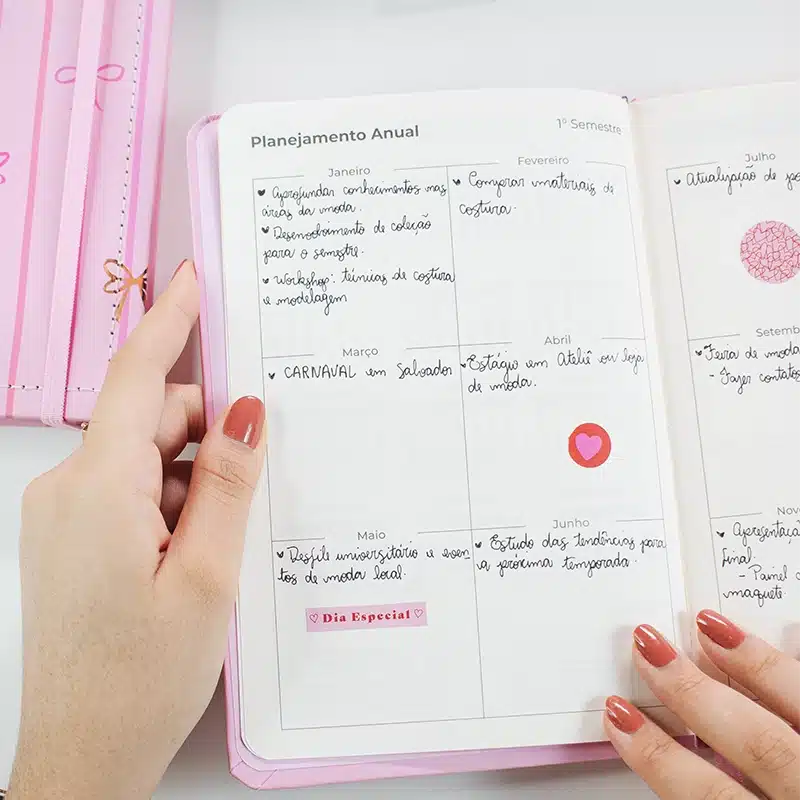 Planejamento Anual
1º Semestre
Janeiro
Aprofundar conhecimentos nas
áreas da moda.
Desenvolvimento de coleção
para o semestre.
Workshop: técnicas de costura
e modelagem
Fevereiro
Comprar materiais de
costura.
Março
CARNAVAL em Salvador
Abril
Estágio em Ateliê ou loja
de moda.
Maio
Desfile universitário e even-
tos de moda local.
Dia Especial
Junho
Estudo das tendências para
a próxima temporada.
Julho
Atualização de
Setemb
Feira de moda
- Fazer contatos
Nov
Apresentaçã
Final.
- Painel
maquete.